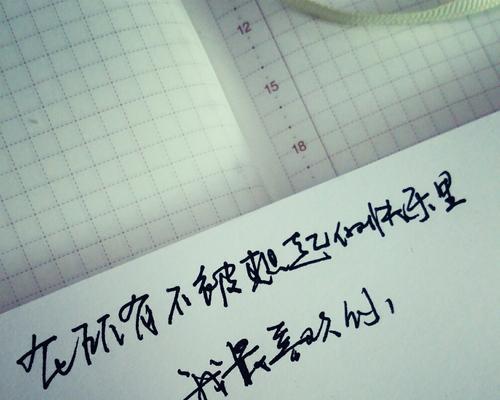 12
15
18
在所有不被想起的快乐里
我最喜欢你，